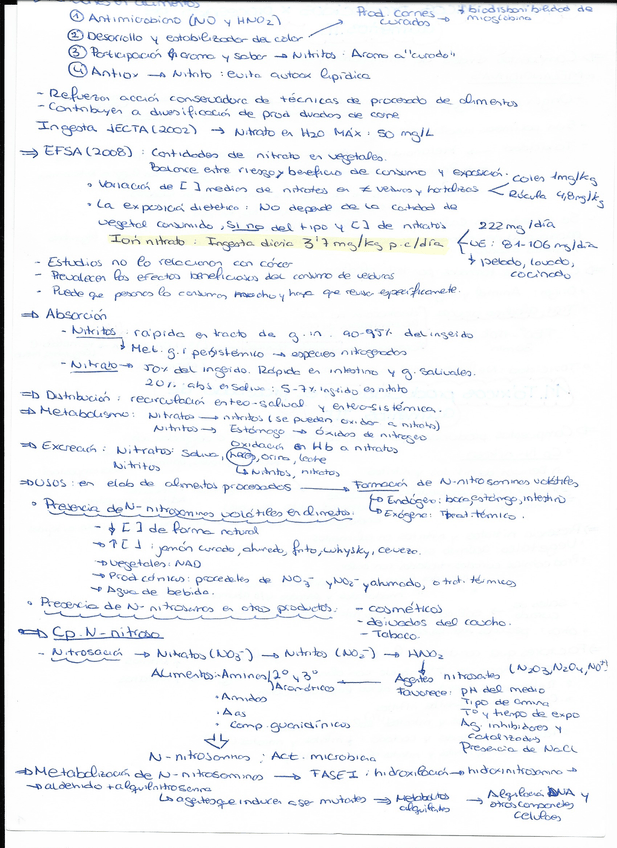 ① Antimicrobiano (NO y HNO2)
Prod. carnes curados → ↓ biodisponibilidad de mioglobina
② Desarrollo y estabilizador del color
③ Participación aroma y sabor → Nitritos: Aroma a "curado"
④ Antiox → Nitrito: evita autoox lipídica
- Refuerzan acción conservadora de técnicas de procesado de alimentos
- Contribuyen a diversificación de prod. de carne
Ingesta JECFA (2002) → Nitrato en H2O MÁX: 50 mg/L
⇒ EFSA (2008): Cantidades de nitrato en vegetales.
Balance entre riesgo y beneficio de consumo y exposición: Coles 1mg/kg
• Variación de [ ] medias de nitratos en ≠ verduras y hortalizas < Rúcula 4,8mg/kg
• La exposición dietética: No depende de la cantidad de
vegetal consumido, sí no del tipo y [ ] de nitratos
222 mg/día
Ión nitrato: Ingesta diaria 3'7 mg/kg p.c/día < UE: 81-106 mg/día
↓ pelado, lavado, cocinado
- Estudios no lo relacionan con cáncer
- Prevalecen los efectos beneficiosos del consumo de verduras
- Puede que personas lo consuman mucho y haya que revisar específicamente.
⇒ Absorción
- Nitritos: rápida en tracto de g.in. 90-95% del ingerido
↳ Met. g.i presistémico → especies nitrogenadas
- Nitrato → 50% del ingerido. Rápida en intestino y g. salivales.
20% abs en saliva: 5-7% ingerido es nitrato
⇒ Distribución: recirculación entero-salival y entero-sistémica.
⇒ Metabolismo: Nitratos → nitritos (se pueden oxidar a nitratos)
Nitritos → Estómago → óxidos de nitrógeno
Oxidación en Hb a nitratos
⇒ Excreción: Nitratos: Saliva, heces, orina, leche
Nitritos ↳ Nitritos, nitratos
⇒ USOS: en elab de alimentos procesados → Formación de N-nitrosaminas volátiles
↳ Endógeno: boca, estómago, intestino
↳ Exógeno: Tprat. térmico.
• Presencia de N-nitrosaminas volátiles en alimentos:
- ↓ [ ] de forma natural
→ ↑ [ ]: jamón curado, ahumado, frito, whysky, cerveza.
→ Vegetales: NAD
→ Prod cárnicos: procedentes de NO3⁻ y NO2⁻ y ahumado, o trat. térmicos
→ Agua de bebida.
• Presencia de N-nitrosaminas en otros productos: - cosméticos
- derivados del caucho.
- Tabaco.
⇒ Cp. N-nitroso
- Nitrosación → Nitratos (NO3⁻) → Nitritos (NO2⁻) → HNO2
Alimentos: Aminas 2º y 3º ← Agentes nitrosantes (N2O3, N2O4, NO⁺)
Aromáticas
• Amidas
• Aas
• Comp. guanidínicos
Favorece: pH del medio
Tipo de amina
Tº y tiempo de expo
Ag. inhibidores y catalizadores
Presencia de NaCl
N-nitrosaminas: Act. microbiana
⇒ Metabolización de N-nitrosaminas → FASE I: hidroxilación → hidroxinitrosamina →
→ aldehído + alquilnitrosamina
↳ agentes que inducen a mutates → Metabolitos alquilantes → Alquilación DNA y otros componentes celulares